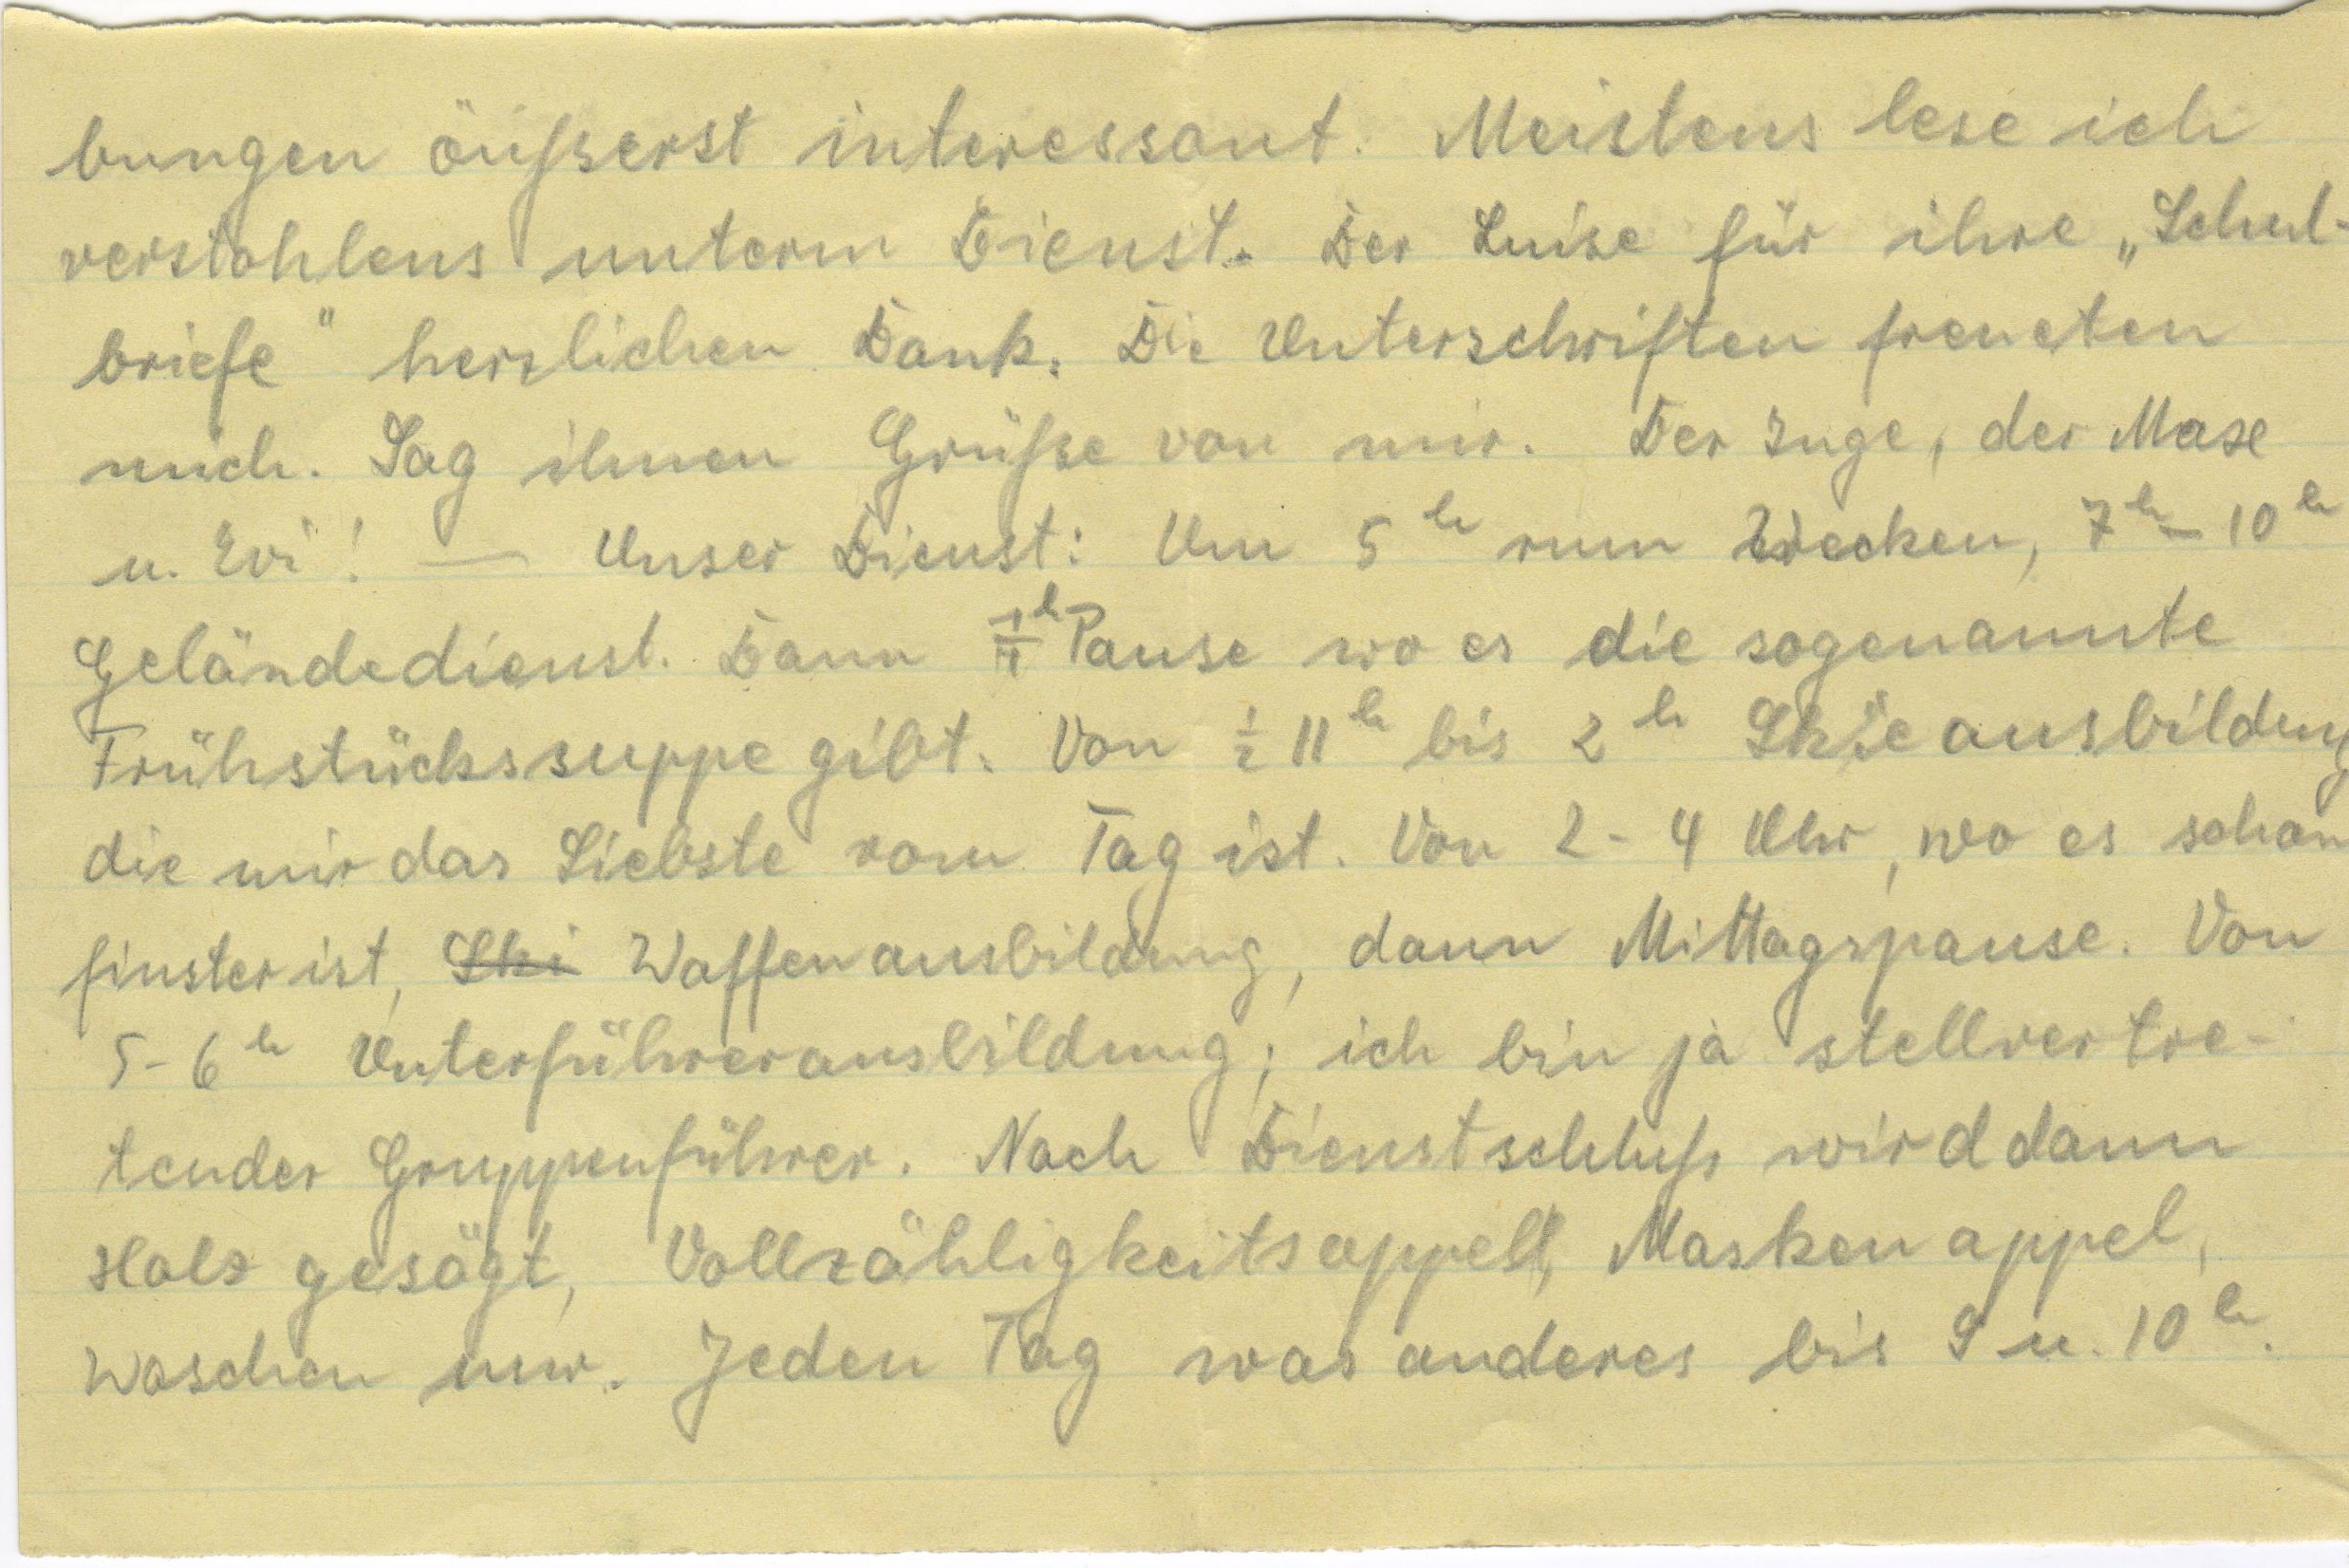 bungen äußerst interessant. Meistens lese ich
verstohlens unterm Dienst. Der Luise für ihre „Schul-
briefe" herzlichen Dank. Die Unterschriften freueten
mich. Sag ihnen Grüße von mir. Der Inge, der Maxe
u. Evi! — Unser Dienst: Um 5h rum Wecken, 7h - 10h
Geländedienst. Dann ¼h Pause wo es die sogenannte
Frühstückssuppe gibt. Von ½ 11h bis 2h Skieausbildung
die mir das Liebste vom Tag ist. Von 2 - 4 Uhr, wo es schon
finster ist, Ski Waffenausbildung, dann Mittagspause. Von
5 - 6h Unterführerausbildung; ich bin ja stellvertre-
tender Gruppenführer. Nach Dienstschluß wird dann
Holz gesägt, Vollzähligkeitsappell, Maskenappel,
Waschen usw. Jeden Tag was anderes bis 9 u. 10h.